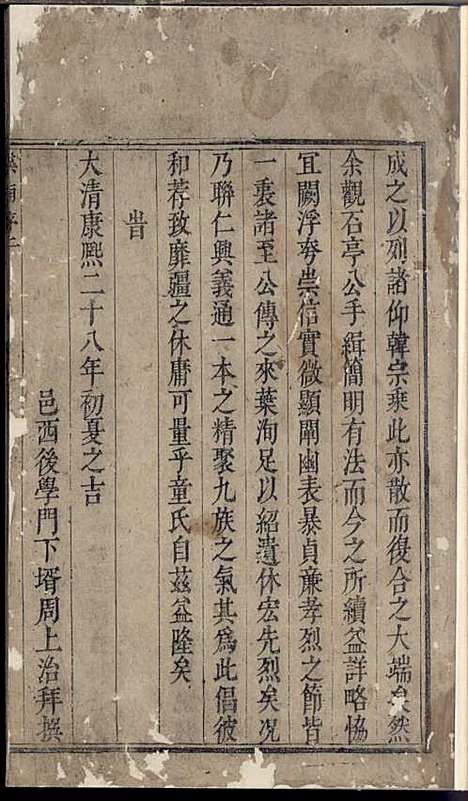 成之以列諸仰韓宗乘此亦散而復合之大端矣然
余觀石亭公手緝簡明有法而今之所續益詳略恊
宜闕浮夸崇信實微顯闡幽表暴貞亷孝烈之節皆
一裏諸至公傳之來葉洵足以紹遺休宏先烈矣况
乃聯仁興義通一本之精聚九族之氣其爲此倡彼
和荐致靡疆之休庸可量乎童氏自茲益隆矣
旹
大清康熙二十八年初夏之吉
邑西後學門下壻周上治拜撰